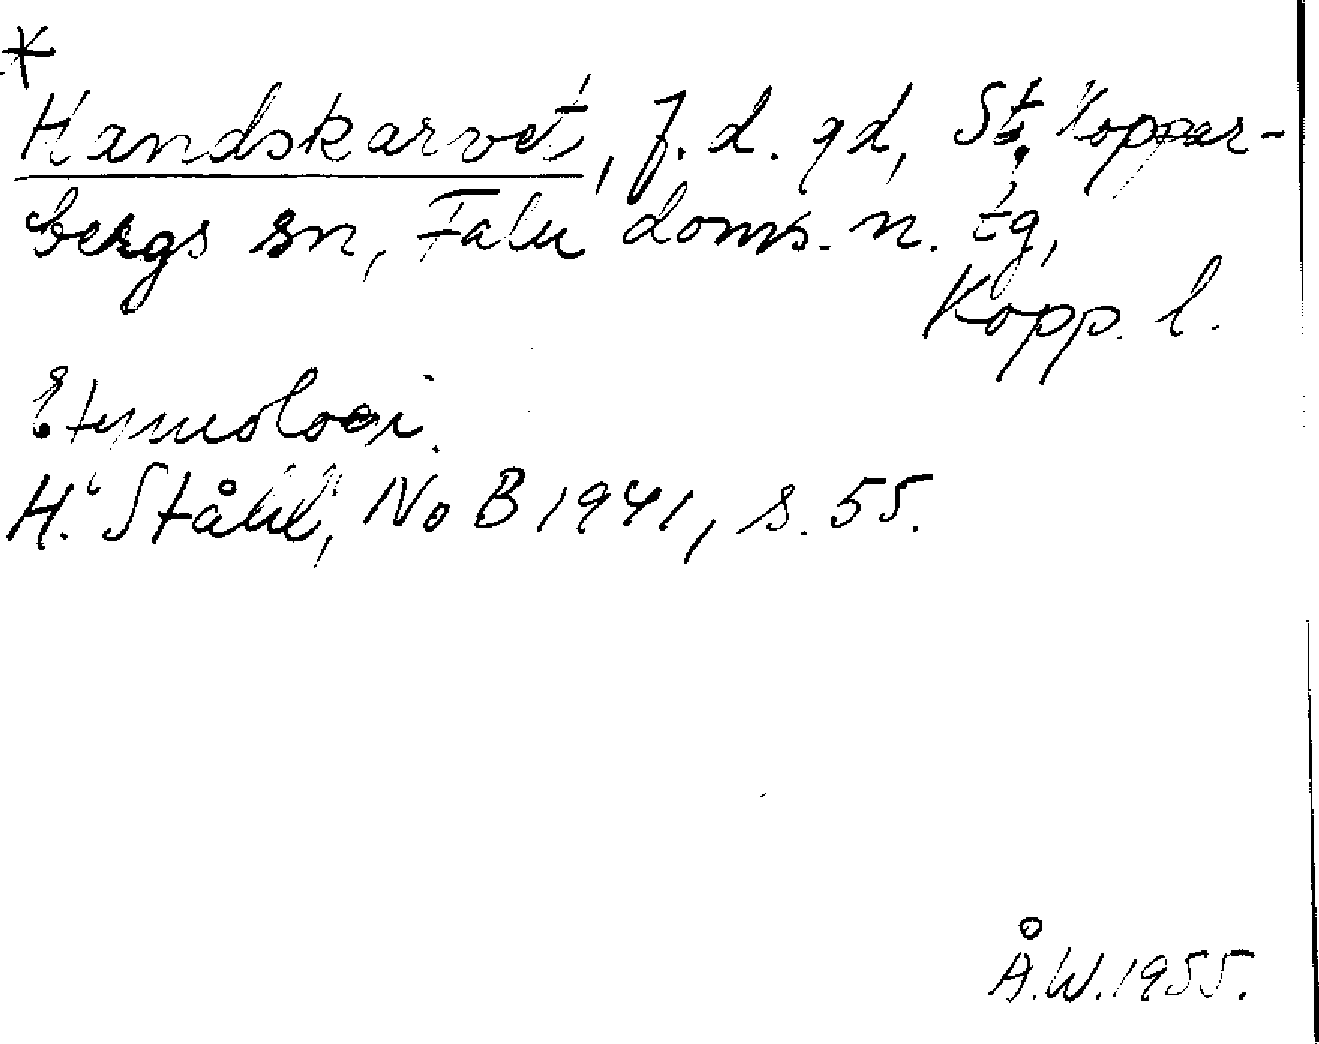 *
Handskarvet, f. d. gd, St. Koppar-
bergs sn, Falu doms. n. tg,
Kopp. l.
Etymologi.
H. Ståhl, NoB 1941, s. 55.
Å.W. 1955.